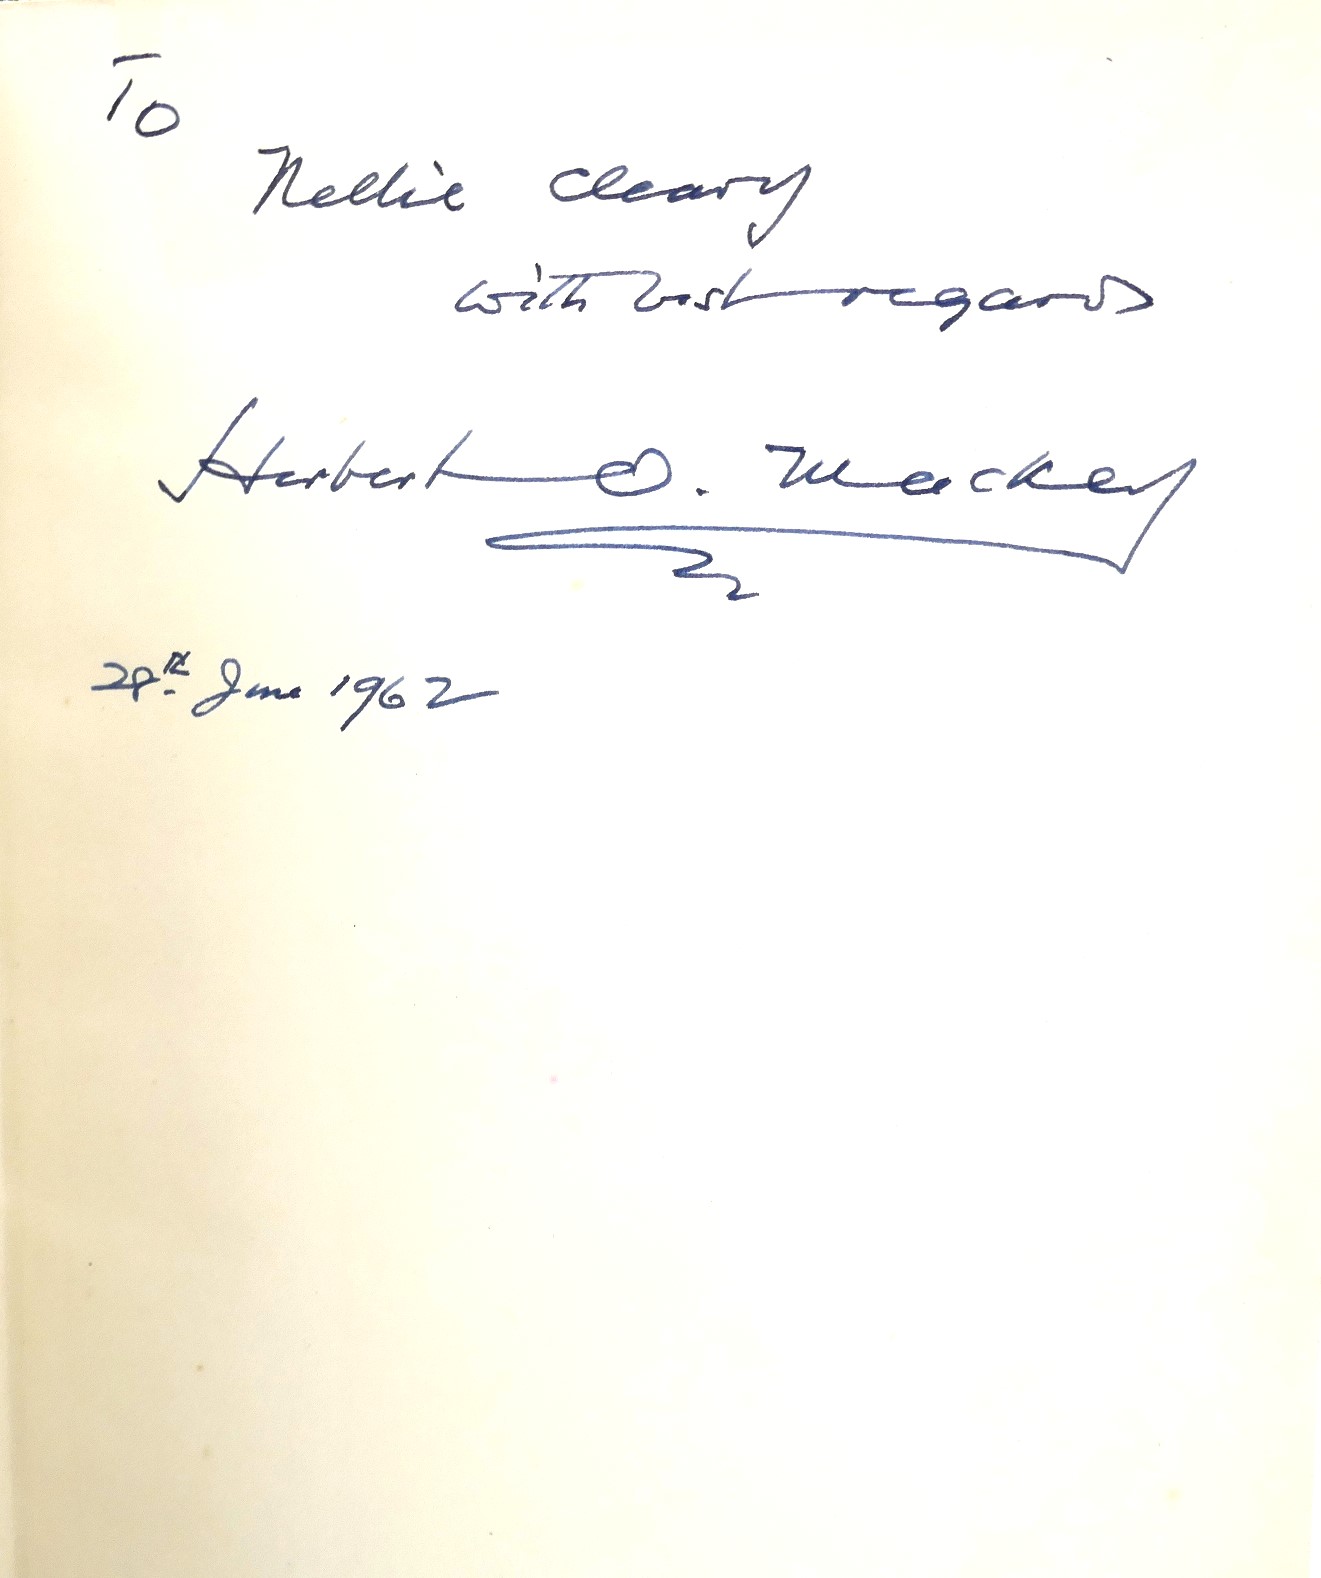 To
Nellie Cleary
with best regards
Herbert O. Mackey
28th June 1962